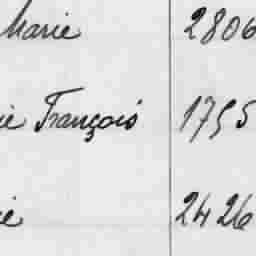 Marie 2806
ie François 1755
ie 2426